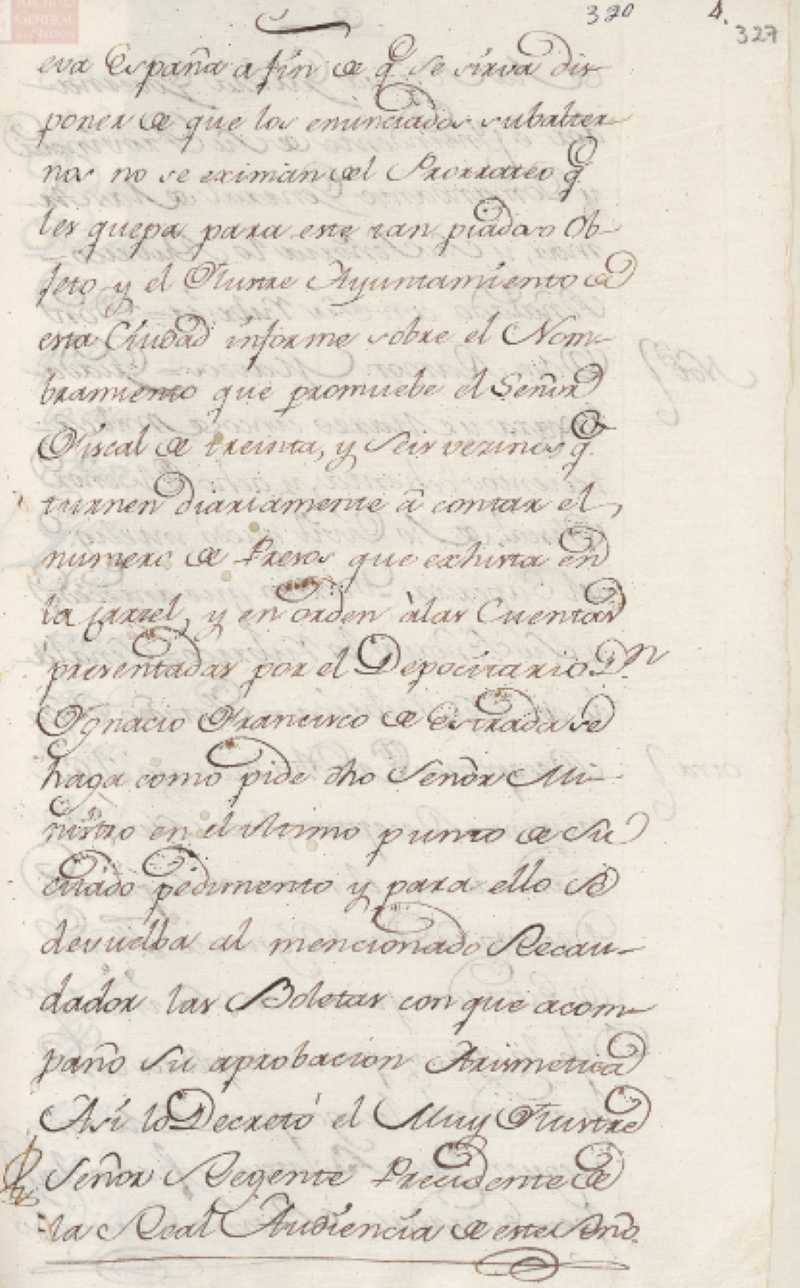 ARCHIVO
GENERAL
320 4.
327
eva España a fin de q.e se sirva dis-
poner de que los enunciados subalter-
nos no se eximan del Prorrateo q.e
les quepa para este tan piadoso Ob-
jeto y el Ilustre Ayuntamiento de
esta Ciudad informe sobre el Nom-
bramiento que promuebe el Señor
Fiscal de treinta, y seis vezinos q.e
turnen diariamente à contar el,
numero de Presos que exhista en
la carzel, y en orden à las Cuentas
presentadas por el Depocitario D.n
Ygnacio Francisco de Estrada se
haga como pide dho Señor Mi-
nistro en el ultimo punto de su
citado pedimento y para ello se
devuelba al mencionado Recau-
dador las Boletas con que acom-
paño su aprobacion Arismetica
Así lo Decretó el Muy Ilustre
Señor Regente Precidente de
la Real Audiencia de este Rno.